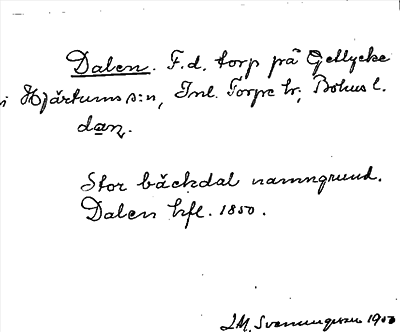 Dalen. F.d. torp på Gellycke
i Hjärtums s:n, Inl. Torpe hr, Bohus l.
dan.
Stor bäckdal namngrund.
Dalen hfl. 1850.
J.M. Svenningsson 19